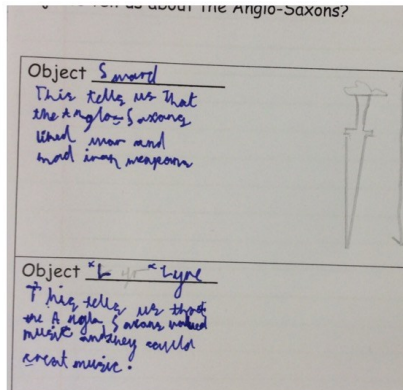 us about the Anglo-Saxons?
Object Sword
This tells us that
the Anglo-Saxons
liked war and
mad iran weapons
Object "L "Lyre
This tells us that
the Anglo Saxons valued
music and they could
creat music.